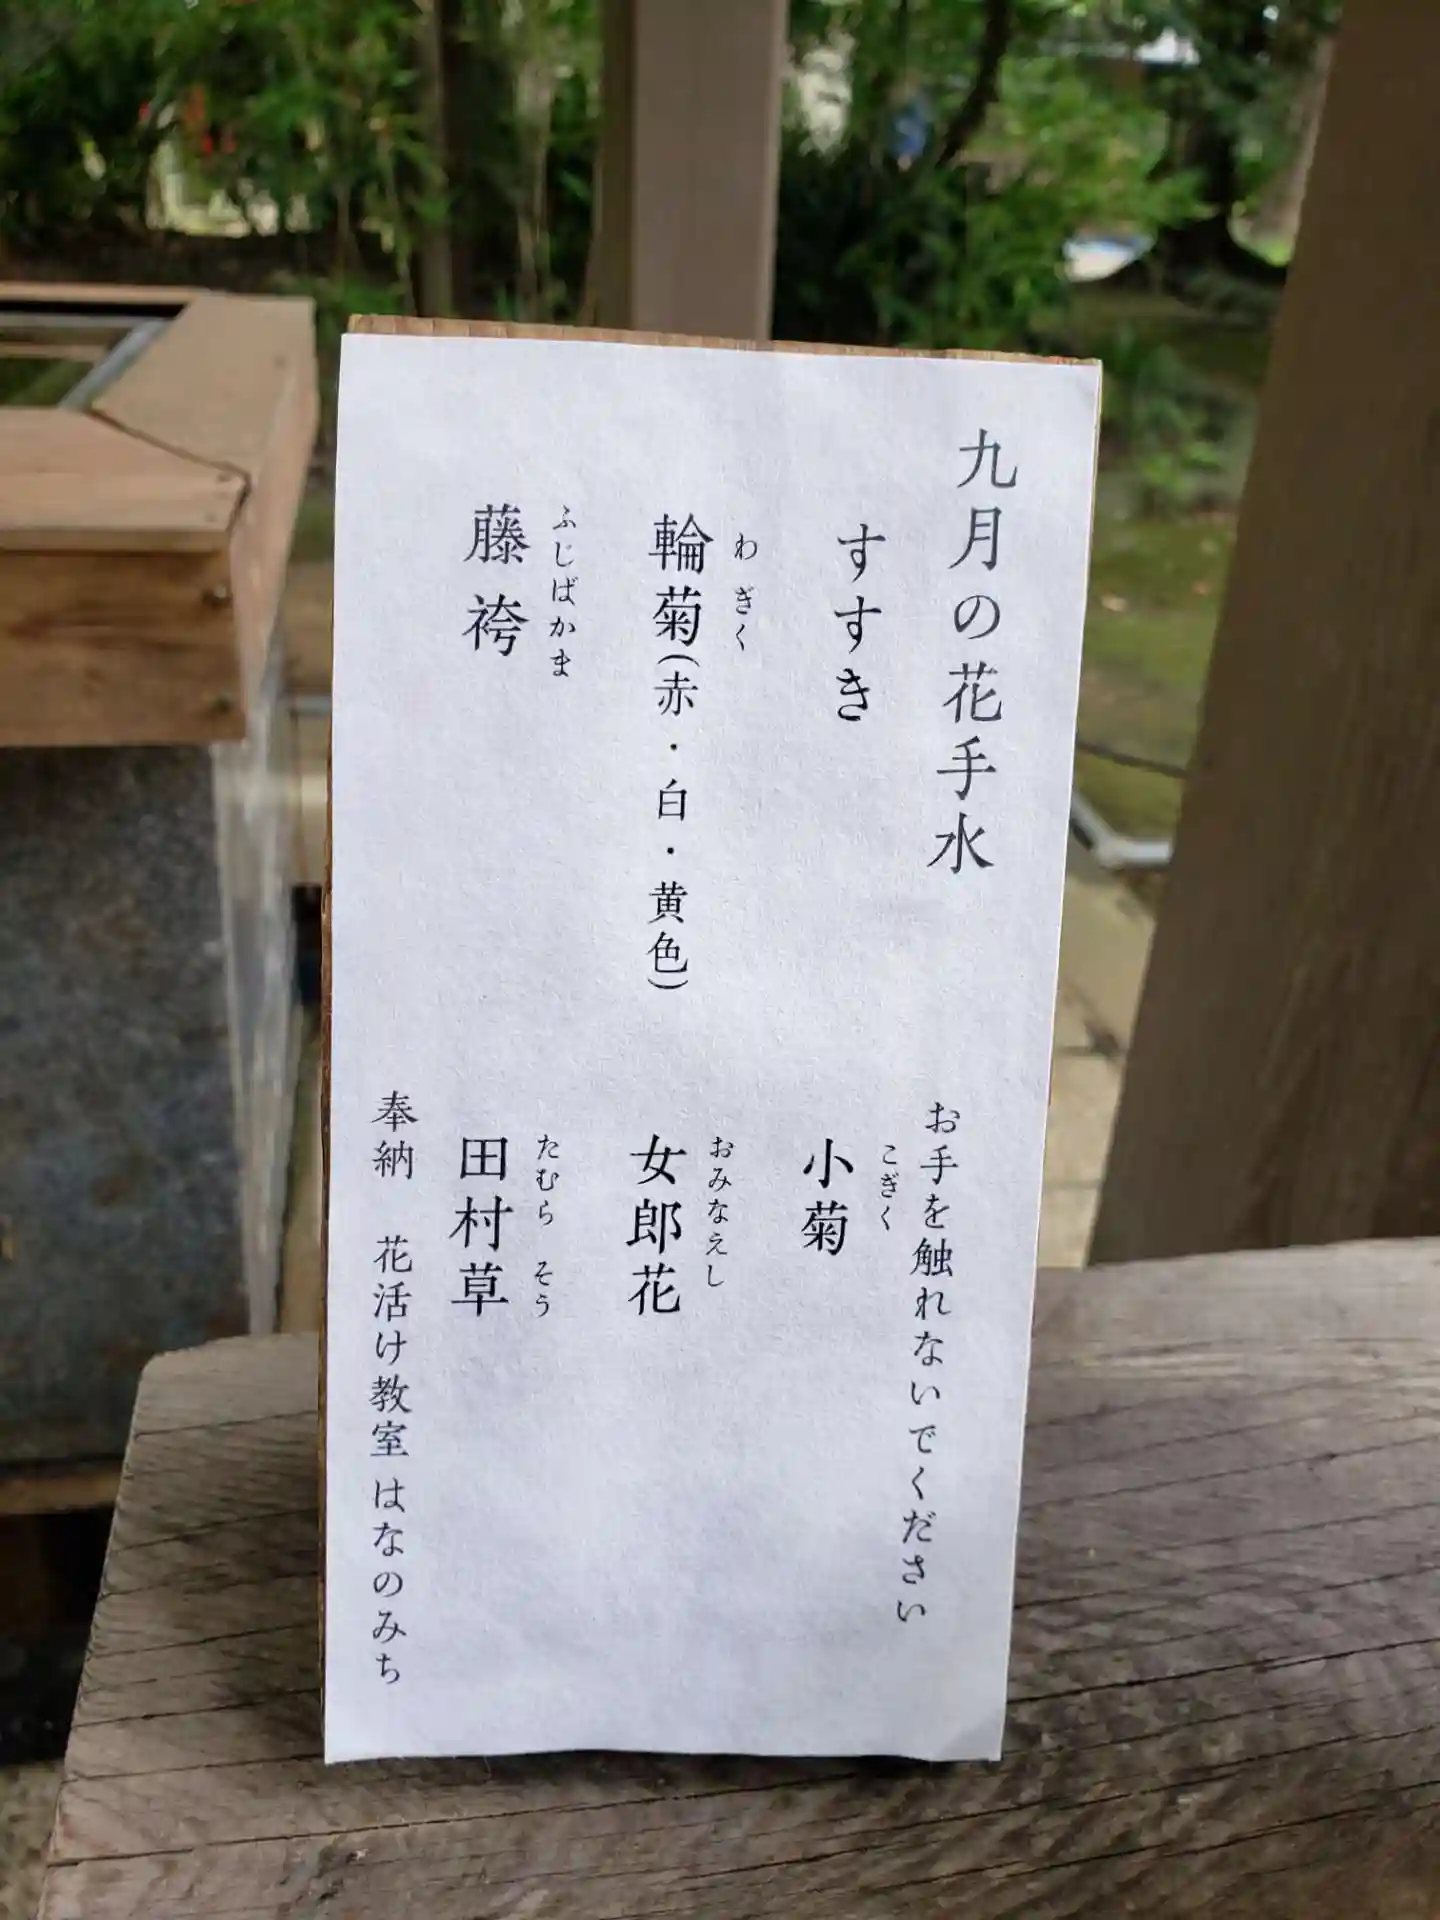 九月の花手水
お手を触れないでください
すすき
こぎく
小菊
わぎく
輪菊(赤・白・黄色)
おみなえし
女郎花
ふじばかま
藤袴
たむら そう
田村草
奉納 花活け教室 はなのみち